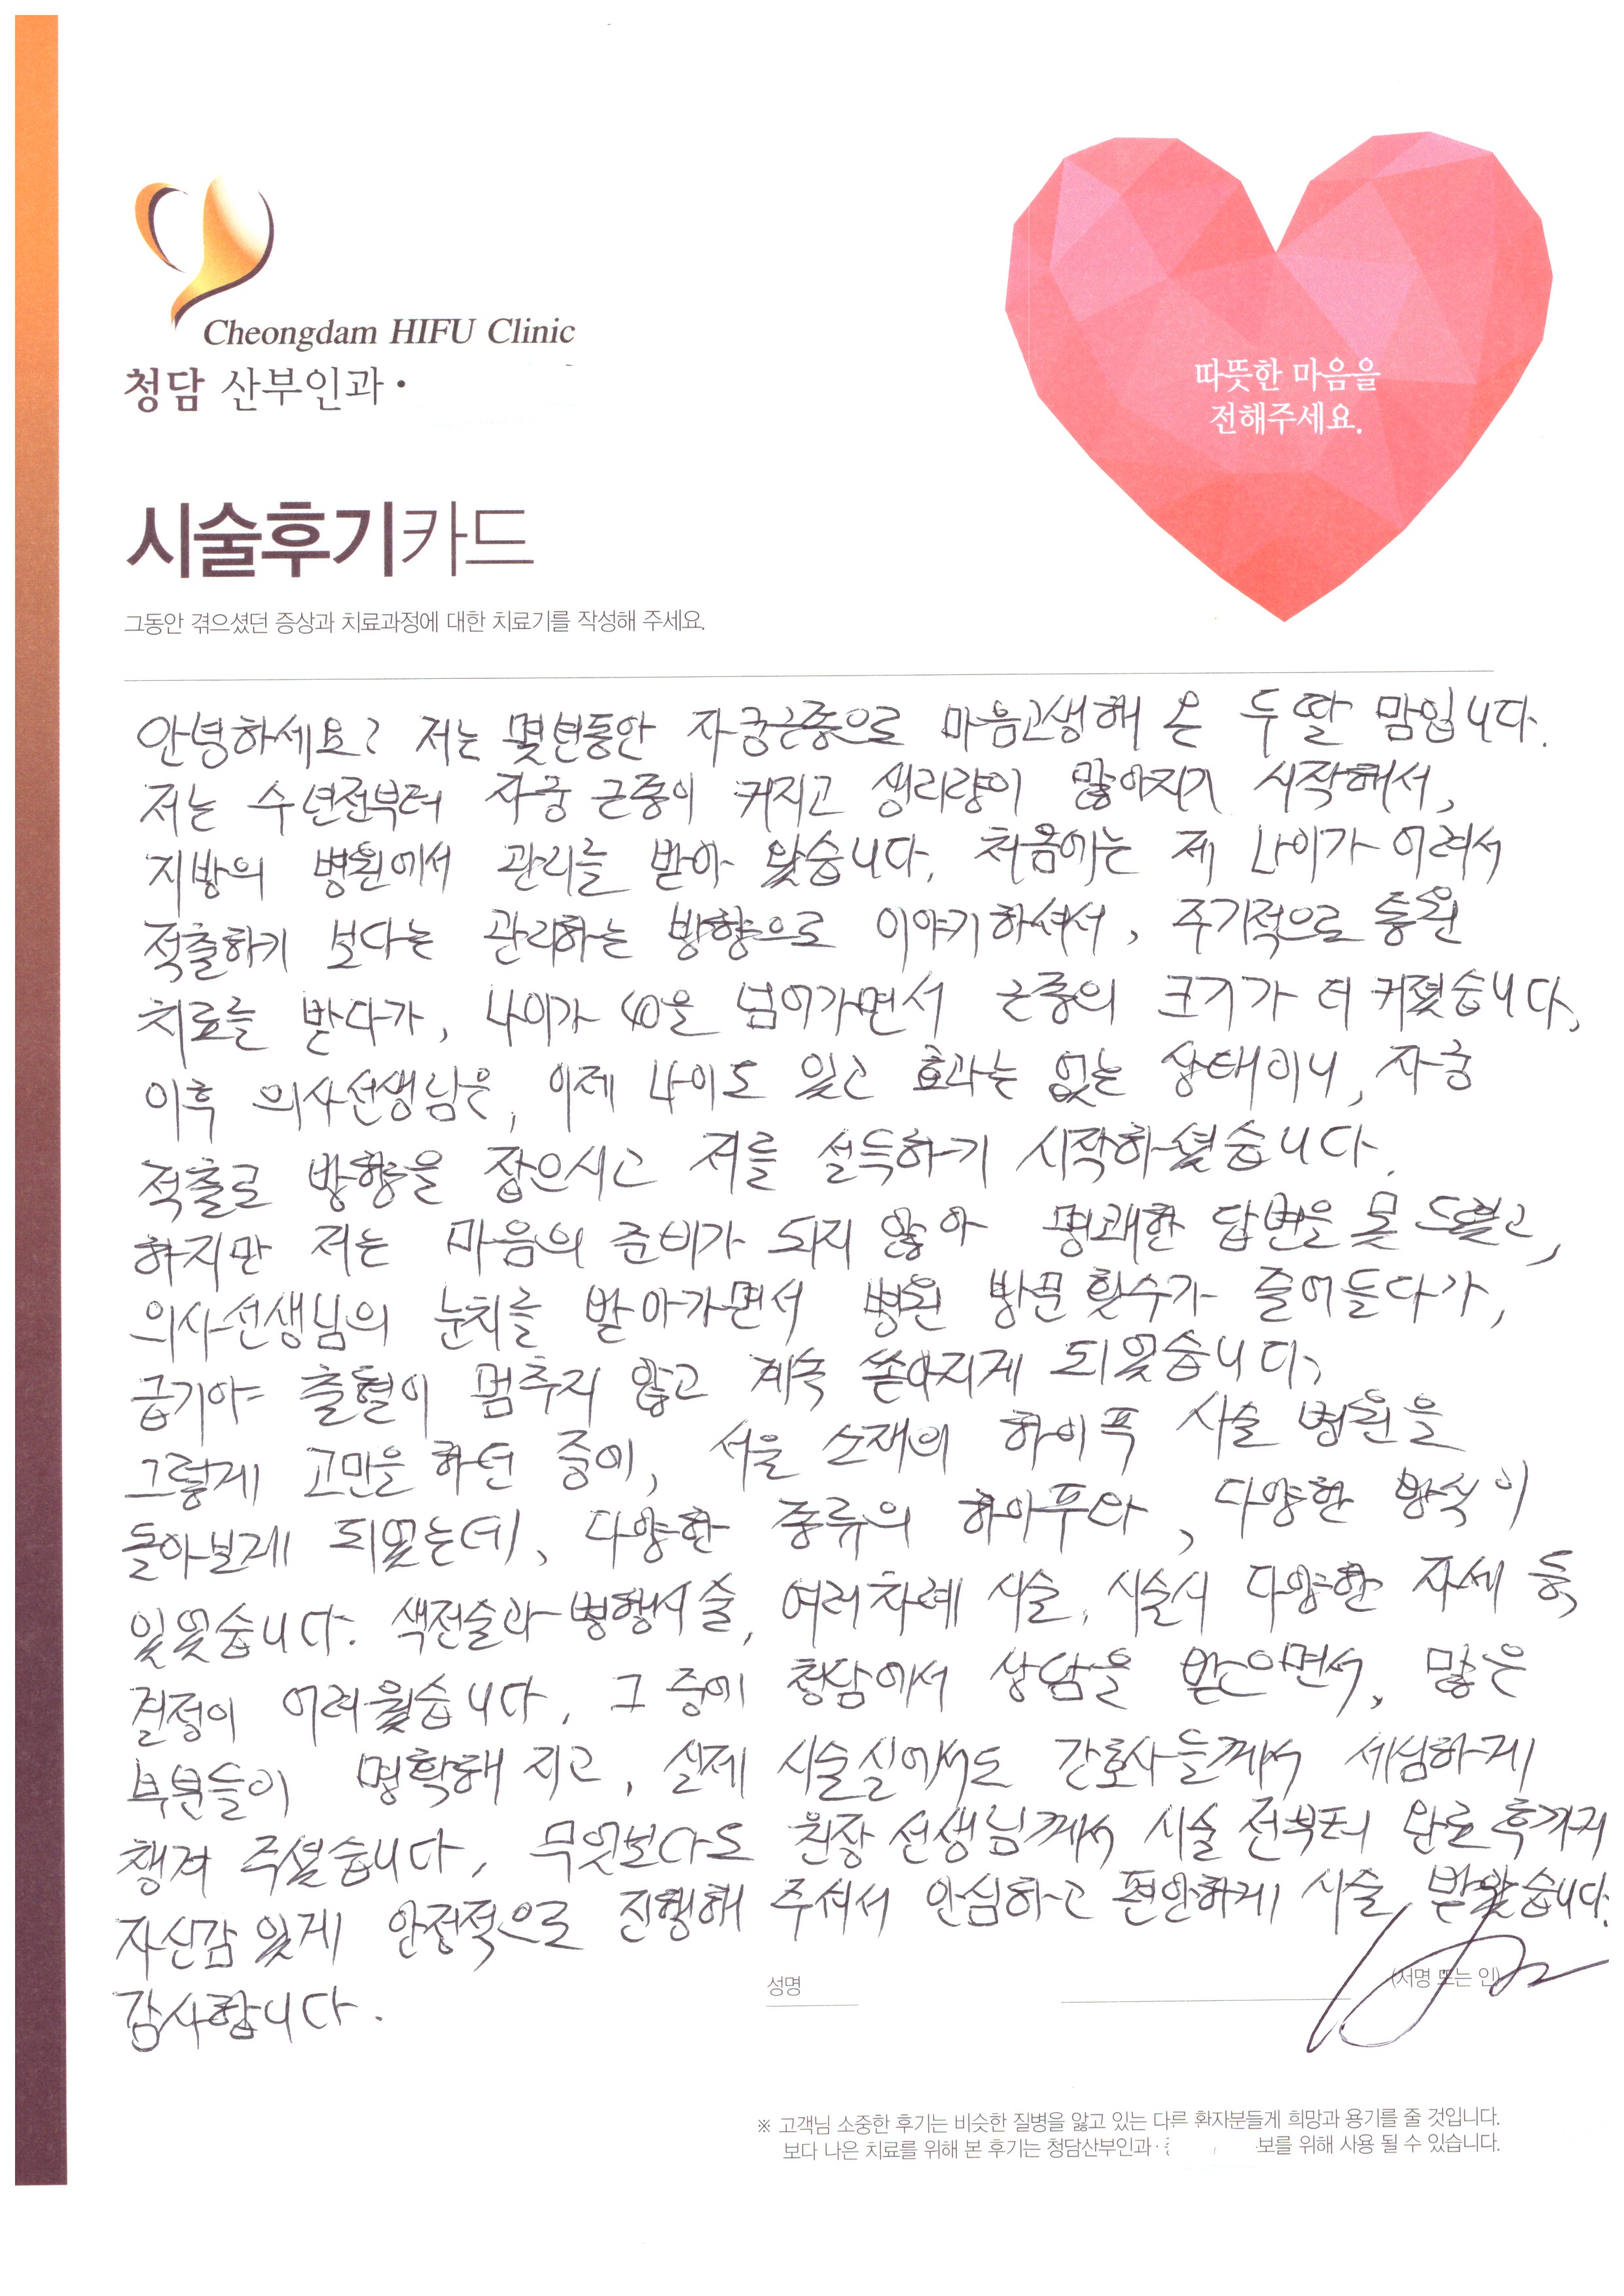 Cheongdam HIFU Clinic
청담 산부인과·
따뜻한 마음을
전해주세요.
시술후기카드
그동안 겪으셨던 증상과 치료과정에 대한 치료기를 작성해 주세요.
안녕하세요? 저는 몇년동안 자궁근종으로 마음고생해 온 두 딸 맘입니다.
저는 수년전부터 자궁 근종이 커지고 생리량이 많아지기 시작해서,
지방의 병원에서 관리를 받아 왔습니다. 처음에는 제 나이가 어려서
적출하기 보다는 관리하는 방향으로 이야기하셔서, 주기적으로 통원
치료를 받다가, 나이가 40을 넘어가면서 근종의 크기가 더 커졌습니다.
이후 의사선생님은, 이제 나이도 있고 효과는 없는 상태이니, 자궁
적출로 방향을 잡으시고 저를 설득하기 시작하셨습니다.
하지만 저는 마음의 준비가 되지 않아 명쾌한 답변을 못 드렸고,
의사선생님의 눈치를 받아가면서 병원 방문 횟수가 줄어들다가,
급기야 출혈이 멈추지 않고 계속 쏟아지게 되었습니다.
그렇게 고민을 하던 중에, 서울 소재의 하이푸 시술 병원을
돌아보게 되었는데, 다양한 종류의 하이푸와, 다양한 방식이
있었습니다. 색전술과 병행시술, 여러차례 시술, 시술시 다양한 자세 등,
결정이 어려웠습니다. 그 중에 청담에서 상담을 받으면서, 많은
부분들이 명확해 지고, 실제 시술실에서도 간호사들께서 세심하게
챙겨 주셨습니다. 무엇보다도 원장 선생님께서 시술 전부터 완료 후까지
자신감 있게 안정적으로 진행해 주셔서 안심하고 편안하게 시술 받았습니다.
감사합니다.
성명
(서명 또는 인)
※ 고객님 소중한 후기는 비슷한 질병을 앓고 있는 다른 환자분들게 희망과 용기를 줄 것입니다.
보다 나은 치료를 위해 본 후기는 청담산부인과· 보를 위해 사용 될 수 있습니다.